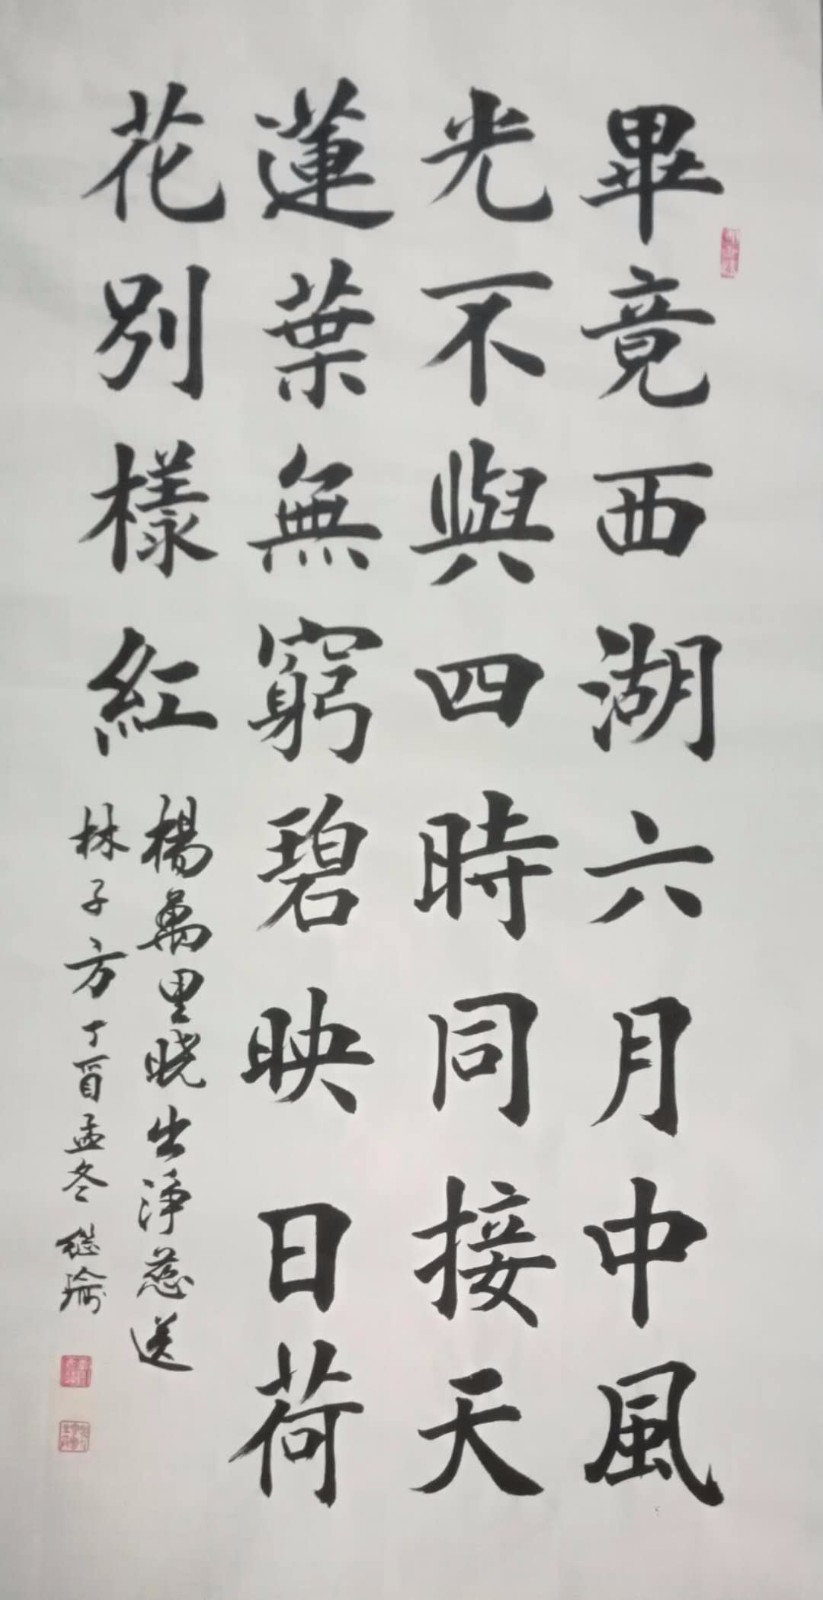 畢竟西湖六月中風
光不與四時同接天
蓮葉無窮碧映日荷
花別樣紅
楊萬里曉出淨慈送
林子方丁酉孟冬继瑜